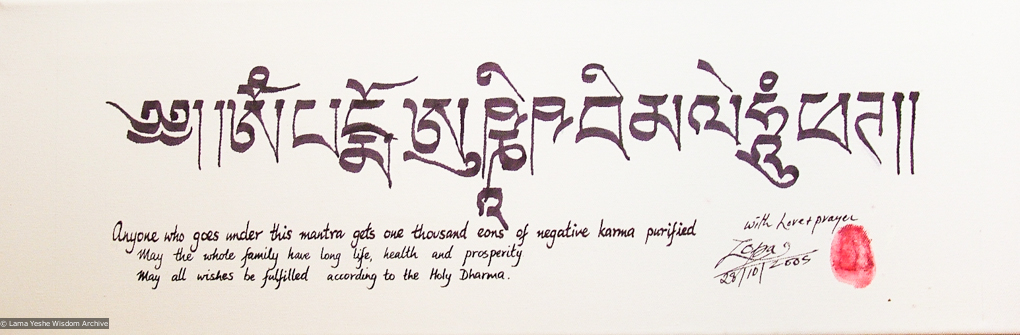 ༄༅། །ཨོཾ་པདྨོ་ཨུཥྞཱི་ཥ་བི་མ་ལེ་ཧཱུྃ་ཕཊ། །
Anyone who goes under this mantra gets one thousand eons of negative karma purified
May the whole family have long life, health and prosperity
May all wishes be fulfilled according to the Holy Dharma.
with Love & prayer
Zopa
28/10/2005
© Lama Yeshe Wisdom Archive